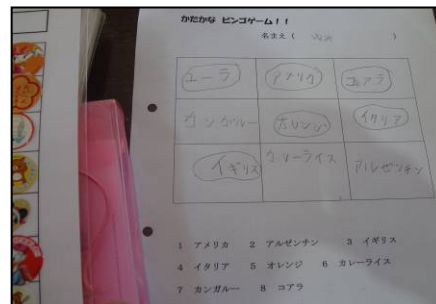 かたかな ビンゴゲーム！！
名まえ（ ）
コーラ アメリカ コアラ
カンガルー オレンジ イタリア
イギリス カレーライス アルゼンチン
1 アメリカ 2 アルゼンチン 3 イギリス
4 イタリア 5 オレンジ 6 カレーライス
7 カンガルー 8 コアラ